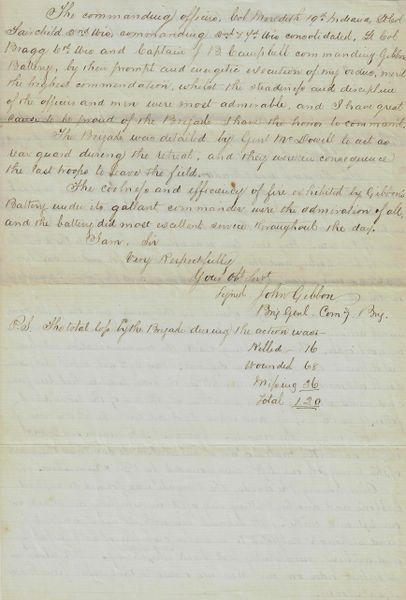 The commanding officers, Col Meredith 19th Indiana, Lt Col
Fairchild 2nd Wis, commanding 2nd & 7th Wis consolidated, Lt Col
Bragg 6th Wis and Captain J B Campbell commanding Gibbon
Battery, by their prompt and energetic execution of my orders, merit
the highest commendation, whilst the steadiness and discipline
of the officers and men were most admirable, and I have great
cause to be proud of the Brigade I have the honor to command.
The Brigade was detailed by Genl McDowell to act as
rear guard during the retreat, and they were in consequence
the last troops to leave the field.
The coolness and efficiency of fire exhibited by Gibbon's
Battery under its gallant commander were the admiration of all,
and the battery did most excellent service throughout the day.
I am, Sir
Very Respectfully
Your Obt Servt
Signed John Gibbon
Brig Genl. Com'g Brig.
P.S. The total loss by the Brigade during the action was
Killed 16
Wounded 68
Missing 36
Total 120